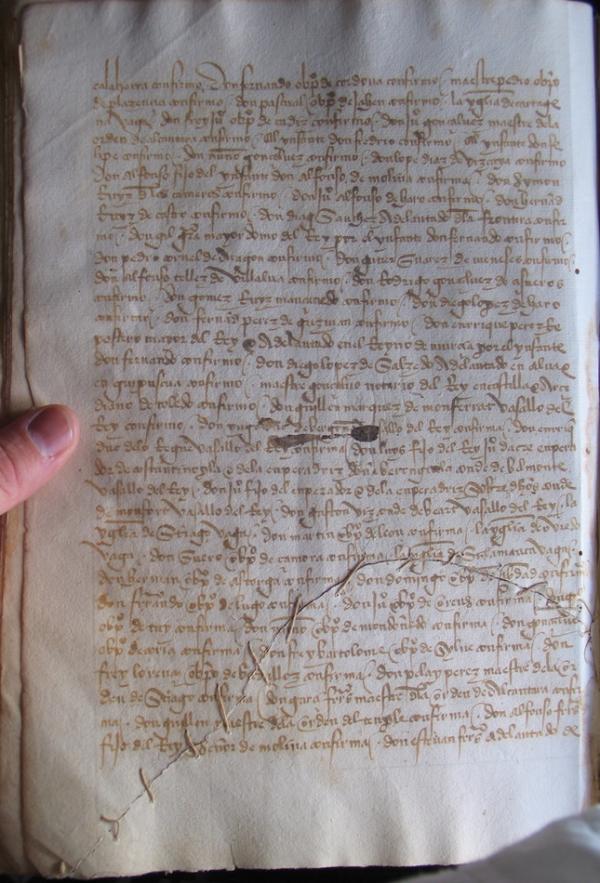 calahorra confirmo, don fernando obpo de cordova confirmo, maestre pedro obpo
de plazencia confirmo. don pascual obpo de jahen confirmo. la yglia de cartage
na vaga. don frey ju obpo de cadiz confirmo. don ju gonçalvez maestre dela
orden de alcantara confirmo. el ynfante don fedric confirmo. el ynfante don fe
lipe confirmo. don nuño gonçalvez confirmo. don lope diaz de vizcaya confirmo
don alfonso fijo del ynfant don alfonso de molina confirma. don symon
Ruyz delos cameros confirmo. don ju alfonso de haro confirmo. don fernad
Ruyz de castro confirmo. don diag Sanchez Adelantado dla frontera confir
mo. don gil gra mayordomo del Rey por el ynfante don fernando confirmo
don pedro cornel de aragon confirmo. don gutier Suarez de meneses confirmo
don alfonso tellez de Villalva confirmo. don Rodrigo gonçalvez de cisneros
confirmo. don gomez Ruyz mançanedo confirmo. don diego lopez de haro
confirma. don fernad perez de guzman confirmo. don enrique perez Re
postero mayor del Rey e Adelantado en el Reyno de murcia por el ynfante
don fernando confirmo. don diego lopez de Salzedo Adelantado en alava e
en guipuscua confirmo. maestre gonçalo notario del Rey en castilla e Arce
diano de toledo confirmo. don guillen marques de monferrat vasallo del
Rey confirmo. don vasallo del Rey confirma. don enrriq
duc de vasallo del Rey confirma don loys fijo del Rey ju dacre empera
dor de costantinopla e dela emperadriz doña berenguela conde de belmonte
vasallo del Rey. don ju fijo del emperador e dela emperadriz Sobre dhos conde
de monfort vasallo del Rey. don gaston vizconde de beart vasallo del Rey. la
yglia de Stiago vaga. don martin obpo de leon confirma. la yglia de oviedo
vaga. don Suero obpo de çamora confirma. la yglia de Salamanca vaga.
don herman obpo de astorga confirma. don domingo obpo de çibdad confirma
don fernando obpo de lugo confirma. don ju obpo de orens confirma
obpo de tuy confirma. don nuño obpo de mondoñedo confirma. don gonçalve
obpo de coria confirma. don frey bartolome obpo de Sylve confirma. don
frey lorenço obpo de badalloz confirma. don pelay perez maestre dela or
den de Stiago confirma. don garci frrs maestre dla orden de Alcantara confir
ma. don guillen maestre dela orden del temple confirma. don alfonso ferrs
fijo del Rey Señor de molina confirma. don estevan frrs adelantado de